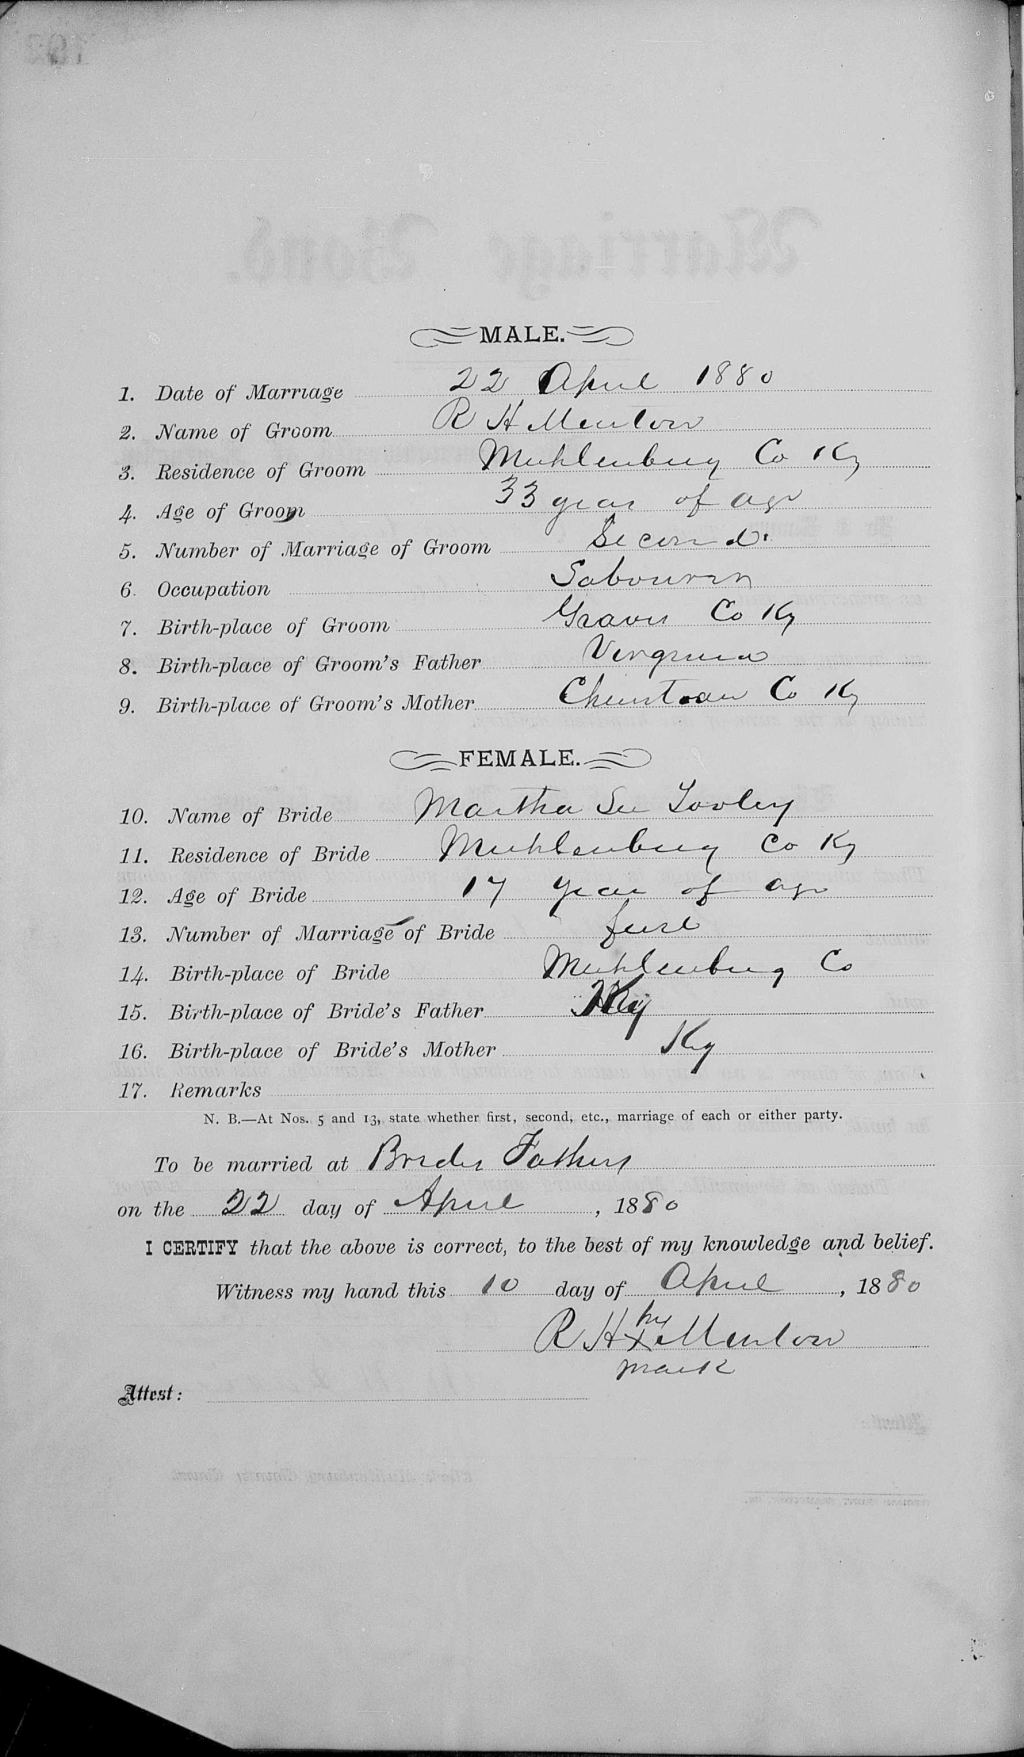 MALE.
1. Date of Marriage 22 April 1880
2. Name of Groom R H Menlow
3. Residence of Groom Muhlenburg Co Ky
4. Age of Groom 33 year of age
5. Number of Marriage of Groom Second.
6. Occupation
7. Birth-place of Groom Graves Co Ky
8. Birth-place of Groom's Father
9. Birth-place of Groom's Mother Co Ky
FEMALE.
10. Name of Bride Martha
11. Residence of Bride Muhlenburg Co Ky
12. Age of Bride 17 year of age
13. Number of Marriage of Bride
14. Birth-place of Bride Muhlenburg Co
15. Birth-place of Bride's Father Ky
16. Birth-place of Bride's Mother Ky
17. Remarks
N. B.—At Nos. 5 and 13, state whether first, second, etc., marriage of each or either party.
To be married at Brides Fathers
on the 22 day of April, 1880
I CERTIFY that the above is correct, to the best of my knowledge and belief.
Witness my hand this 10 day of April, 1880
his
R H x Menlow
mark
Attest: